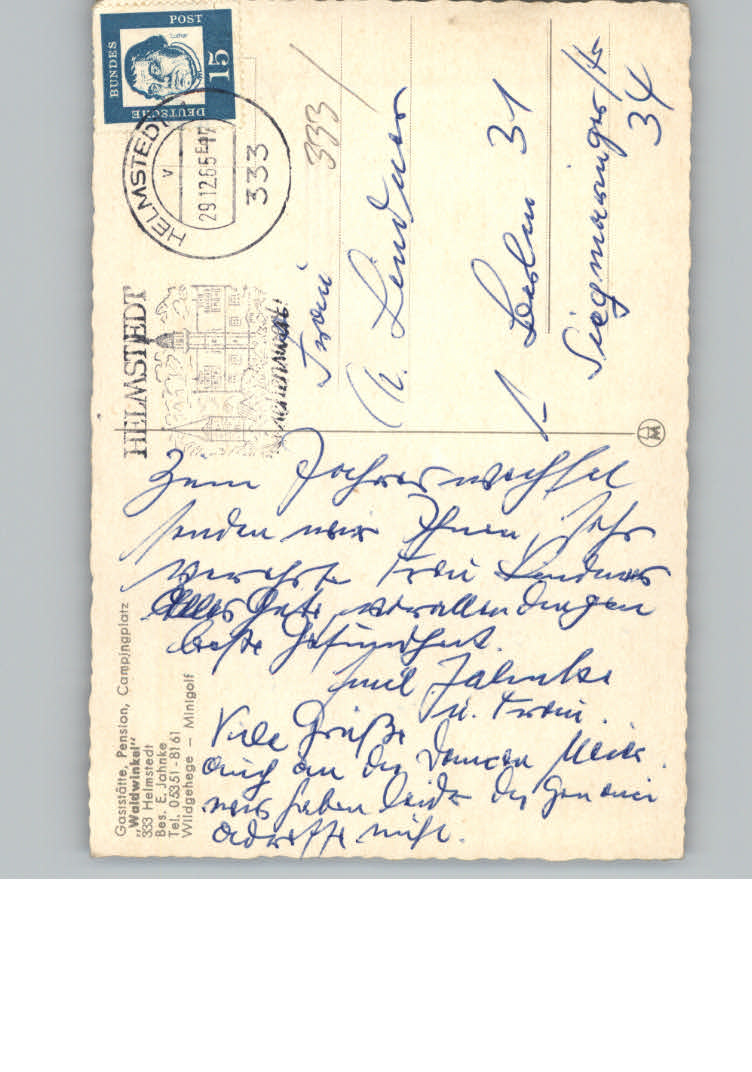 DEUTSCHE
BUNDES
POST
15
Luther
HELMSTEDT
29.12.65-17
333
HELMSTEDT
333
Frau
Lindner
1 Berlin 31
Siegmaringer/Str
34
Zum Jahreswechsel
senden wir Ihnen, sehr
verehrte Frau Lindner
Alles Gute, vor allen dingen
beste Gesundheit.
Emil Jahnke
u. Frau.
Viele Grüße
auch an die Damen
wir haben leider die genaue
Adresse nicht.
Gaststätte, Pension, Campingplatz
„Waldwinkel"
333 Helmstedt
Bes. E. Jahnke
Tel. 05351-8161
Wildgehege – Minigolf